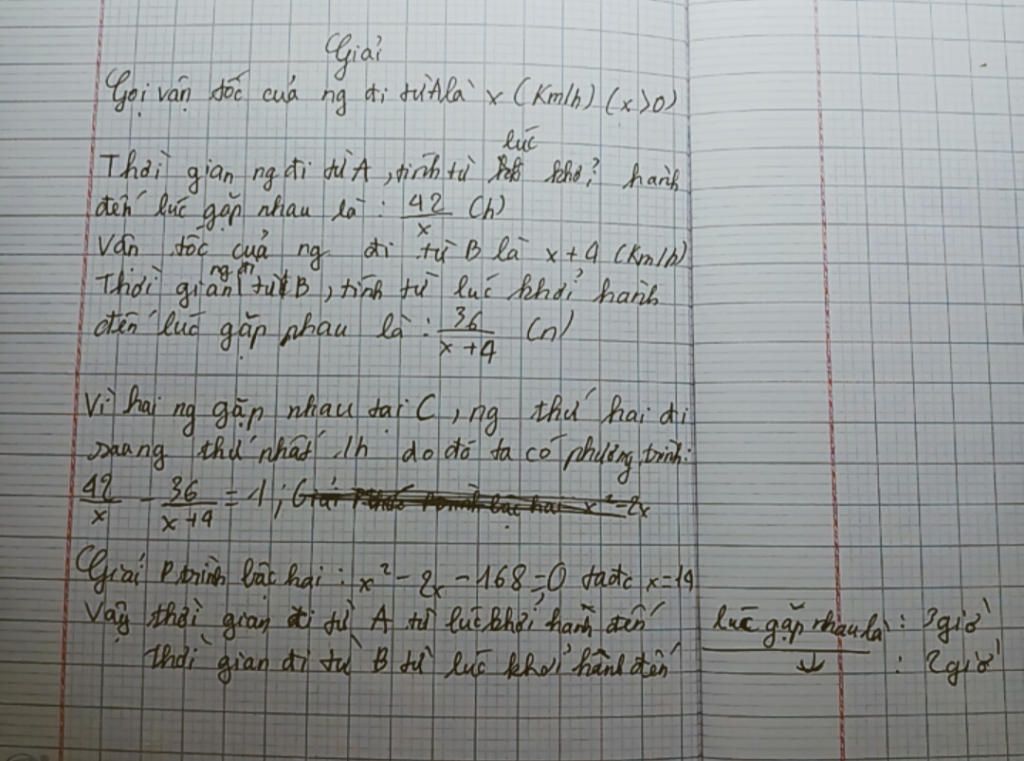 Giải
Gọi vận tốc của ng đi từ A là x (Km/h) (x>0)
lúc
Thời gian ng đi từ A, tính từ khởi hành
đến lúc gặp nhau là : 42/x (h)
Vận tốc của ng đi từ B là x+4 (Km/h)
ng đi
Thời gian từ B, tính từ lúc khởi hành
đến lúc gặp nhau là : 36/(x+4) (h)
Vì hai ng gặp nhau tại C, ng thứ hai đi
saung thứ nhất 1h do đó ta có phương trình:
42/x - 36/(x+4) = 1; Giải Ptrình bậc hai x² - 2x
Giải Ptrình bậc hai : x² - 2x - 168 = 0 ta đc x=14
Vậy thời gian đi từ A từ lúc khởi hành đến lúc gặp nhau là : 3 giờ
Thời gian đi từ B từ lúc khởi hành đến ↓ : 2 giờ